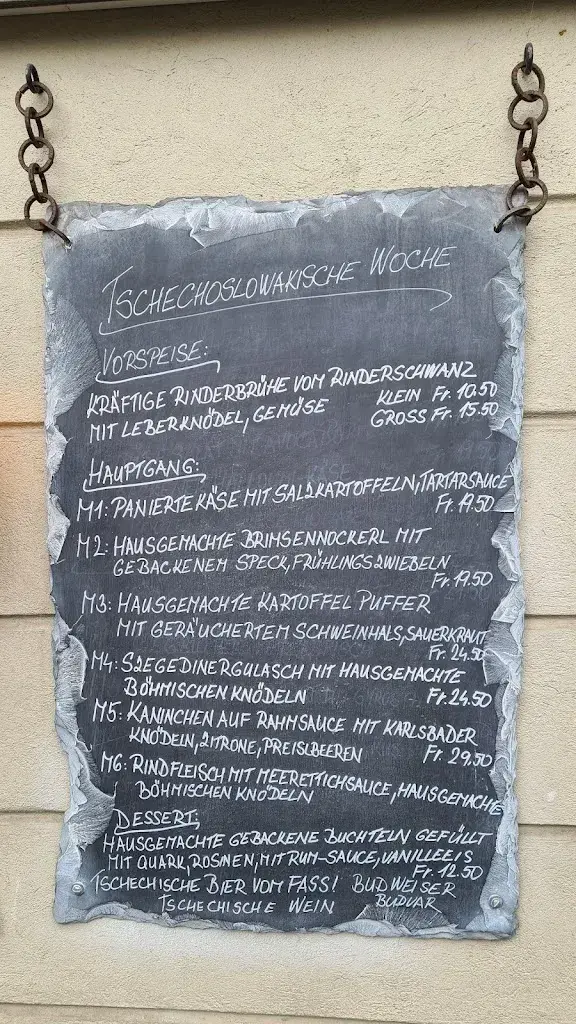 TSCHECHOSLOWAKISCHE WOCHE
VORSPEISE:
KRÄFTIGE RINDERBRÜHE VOM RINDERSCHWANZ
MIT LEBERKNÖDEL, GEMÜSE KLEIN Fr. 10.50
GROSS Fr. 15.50
HAUPTGANG:
M1: PANIERTE KÄSE MIT SALZKARTOFFELN, TARTARSAUCE
Fr. 19.50
M2: HAUSGEMACHTE BRIMSENNOCKERL MIT
GEBACKENEM SPECK, FRÜHLINGSZWIEBELN
Fr. 19.50
M3: HAUSGEMACHTE KARTOFFEL PUFFER
MIT GERÄUCHERTEM SCHWEINHALS, SAUERKRAUT
Fr. 24.50
M4: SZEGEDINERGULASCH MIT HAUSGEMACHTE
BÖHMISCHEN KNÖDELN Fr. 24.50
M5: KANINCHEN AUF RAHMSAUCE MIT KARLSBADER
KNÖDELN, ZITRONE, PREISLBEEREN Fr. 29.50
M6: RINDFLEISCH MIT MEERETTICHSAUCE, HAUSGEMACHTE
BÖHMISCHEN KNÖDELN
DESSERT:
HAUSGEMACHTE GEBACKENE BUCHTELN GEFÜLLT
MIT QUARK, ROSINEN, MIT RUM-SAUCE, VANILLEEIS
Fr. 12.50
TSCHECHISCHE BIER VOM FASS! BUDWEISER
BUDVAR
TSCHECHISCHE WEIN